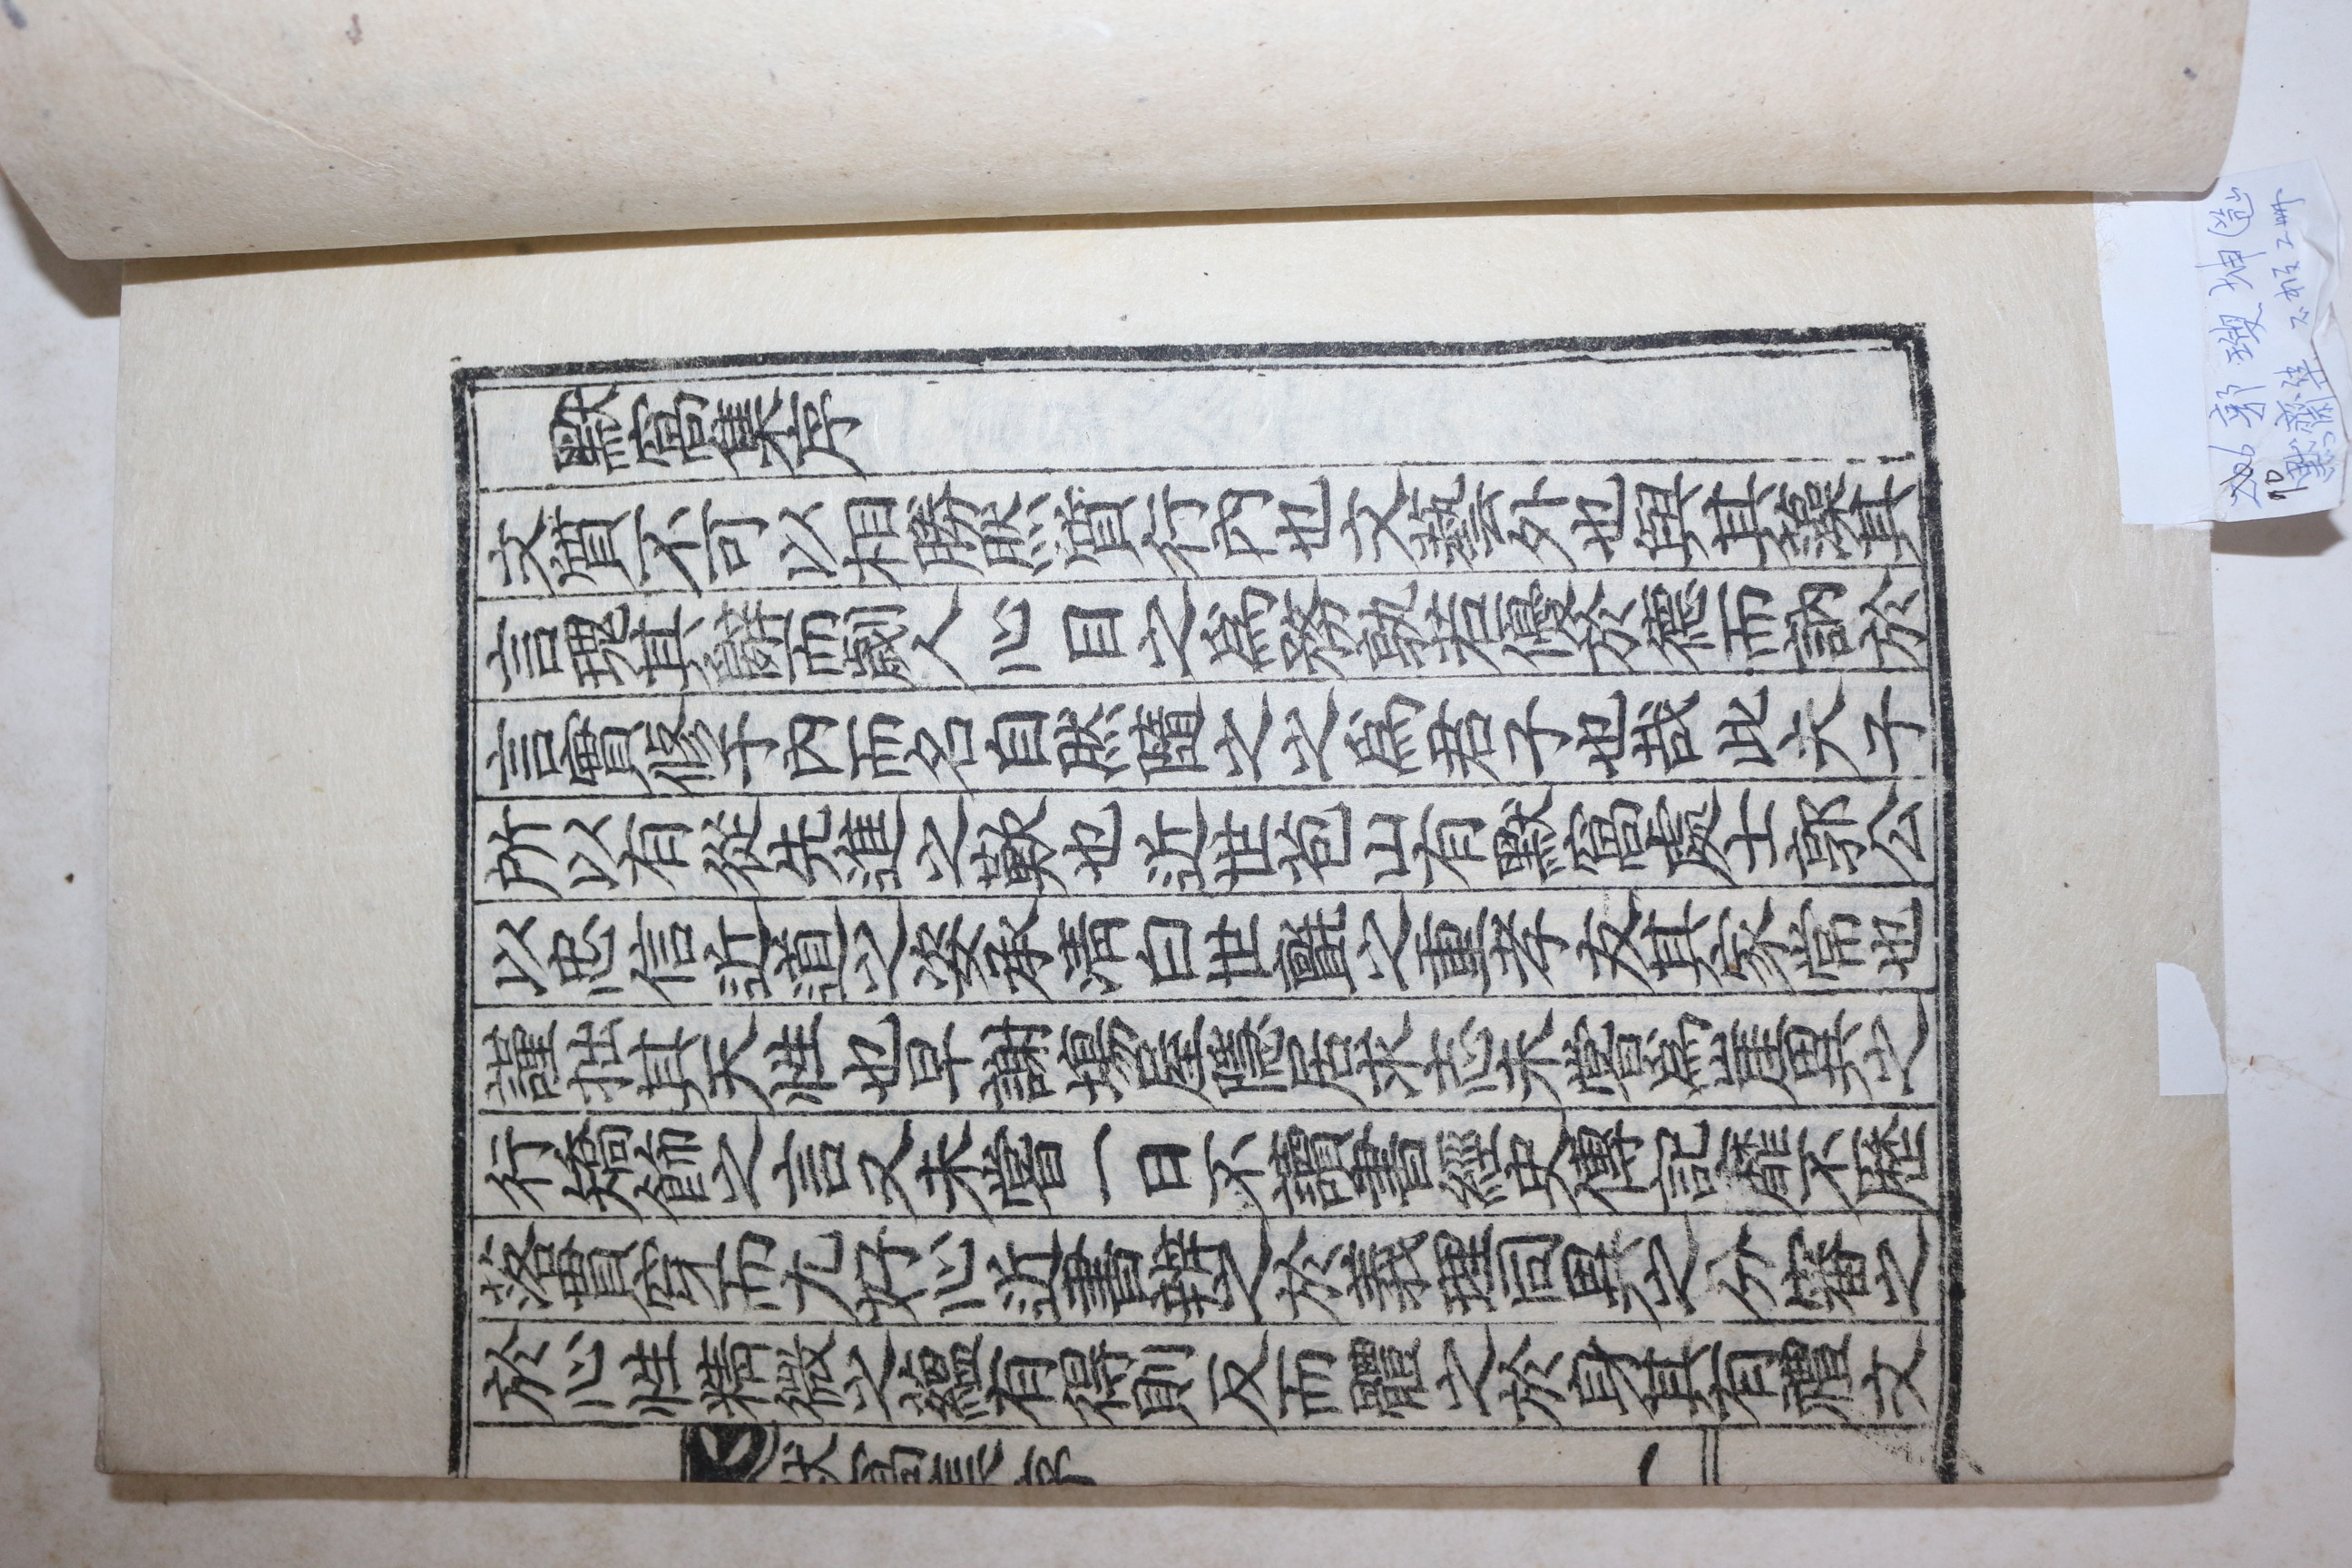 默窩集序
文質不可以相勝然質行內也文藝外也與其藻其
言瑰其辭而劌人心目之爲務孰若優於德而訥於
言實修于內而名自然隨之之爲君子也哉此夫子
所以有從先進之歎也近世苞山有默窩處士郭公
以忠信近道之姿承淸白世氈之重孝友其家常也
謹拙其天性也早謝塲屋隱居求志未嘗爲崖異之
行矯飾之言又未嘗一日不讀書經史傳記靡不歷
落貫穿而尤好心近書辨之於義理同異之分審之
於心性精微之蘊有得則反而體之於身其有禮文
默窩集序
一
郭 坤(苞山
90
默齋集 二冊